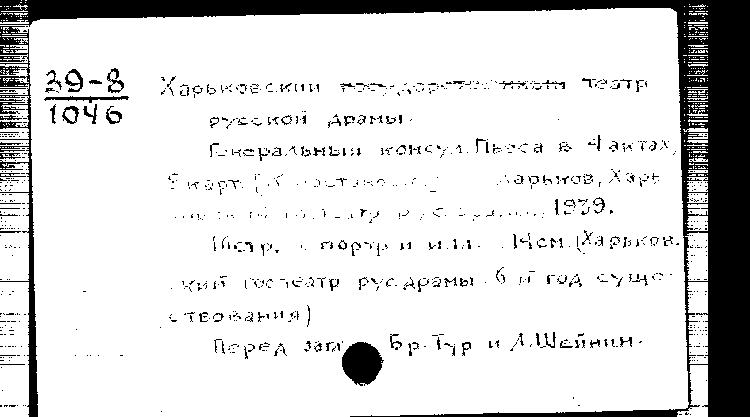 39-8
1046
Харьковский государственный театр
русской драмы.
Генеральный консул. Пьеса в 4 актах,
карт. Харьков, Харь
1939.
16 стр. с портр и илл. 14 см. (Харьков.
ский гостеатр рус драмы. 6 й год суще-
ствования)
Перед загл. Бр. Тур и Л. Шейнин.